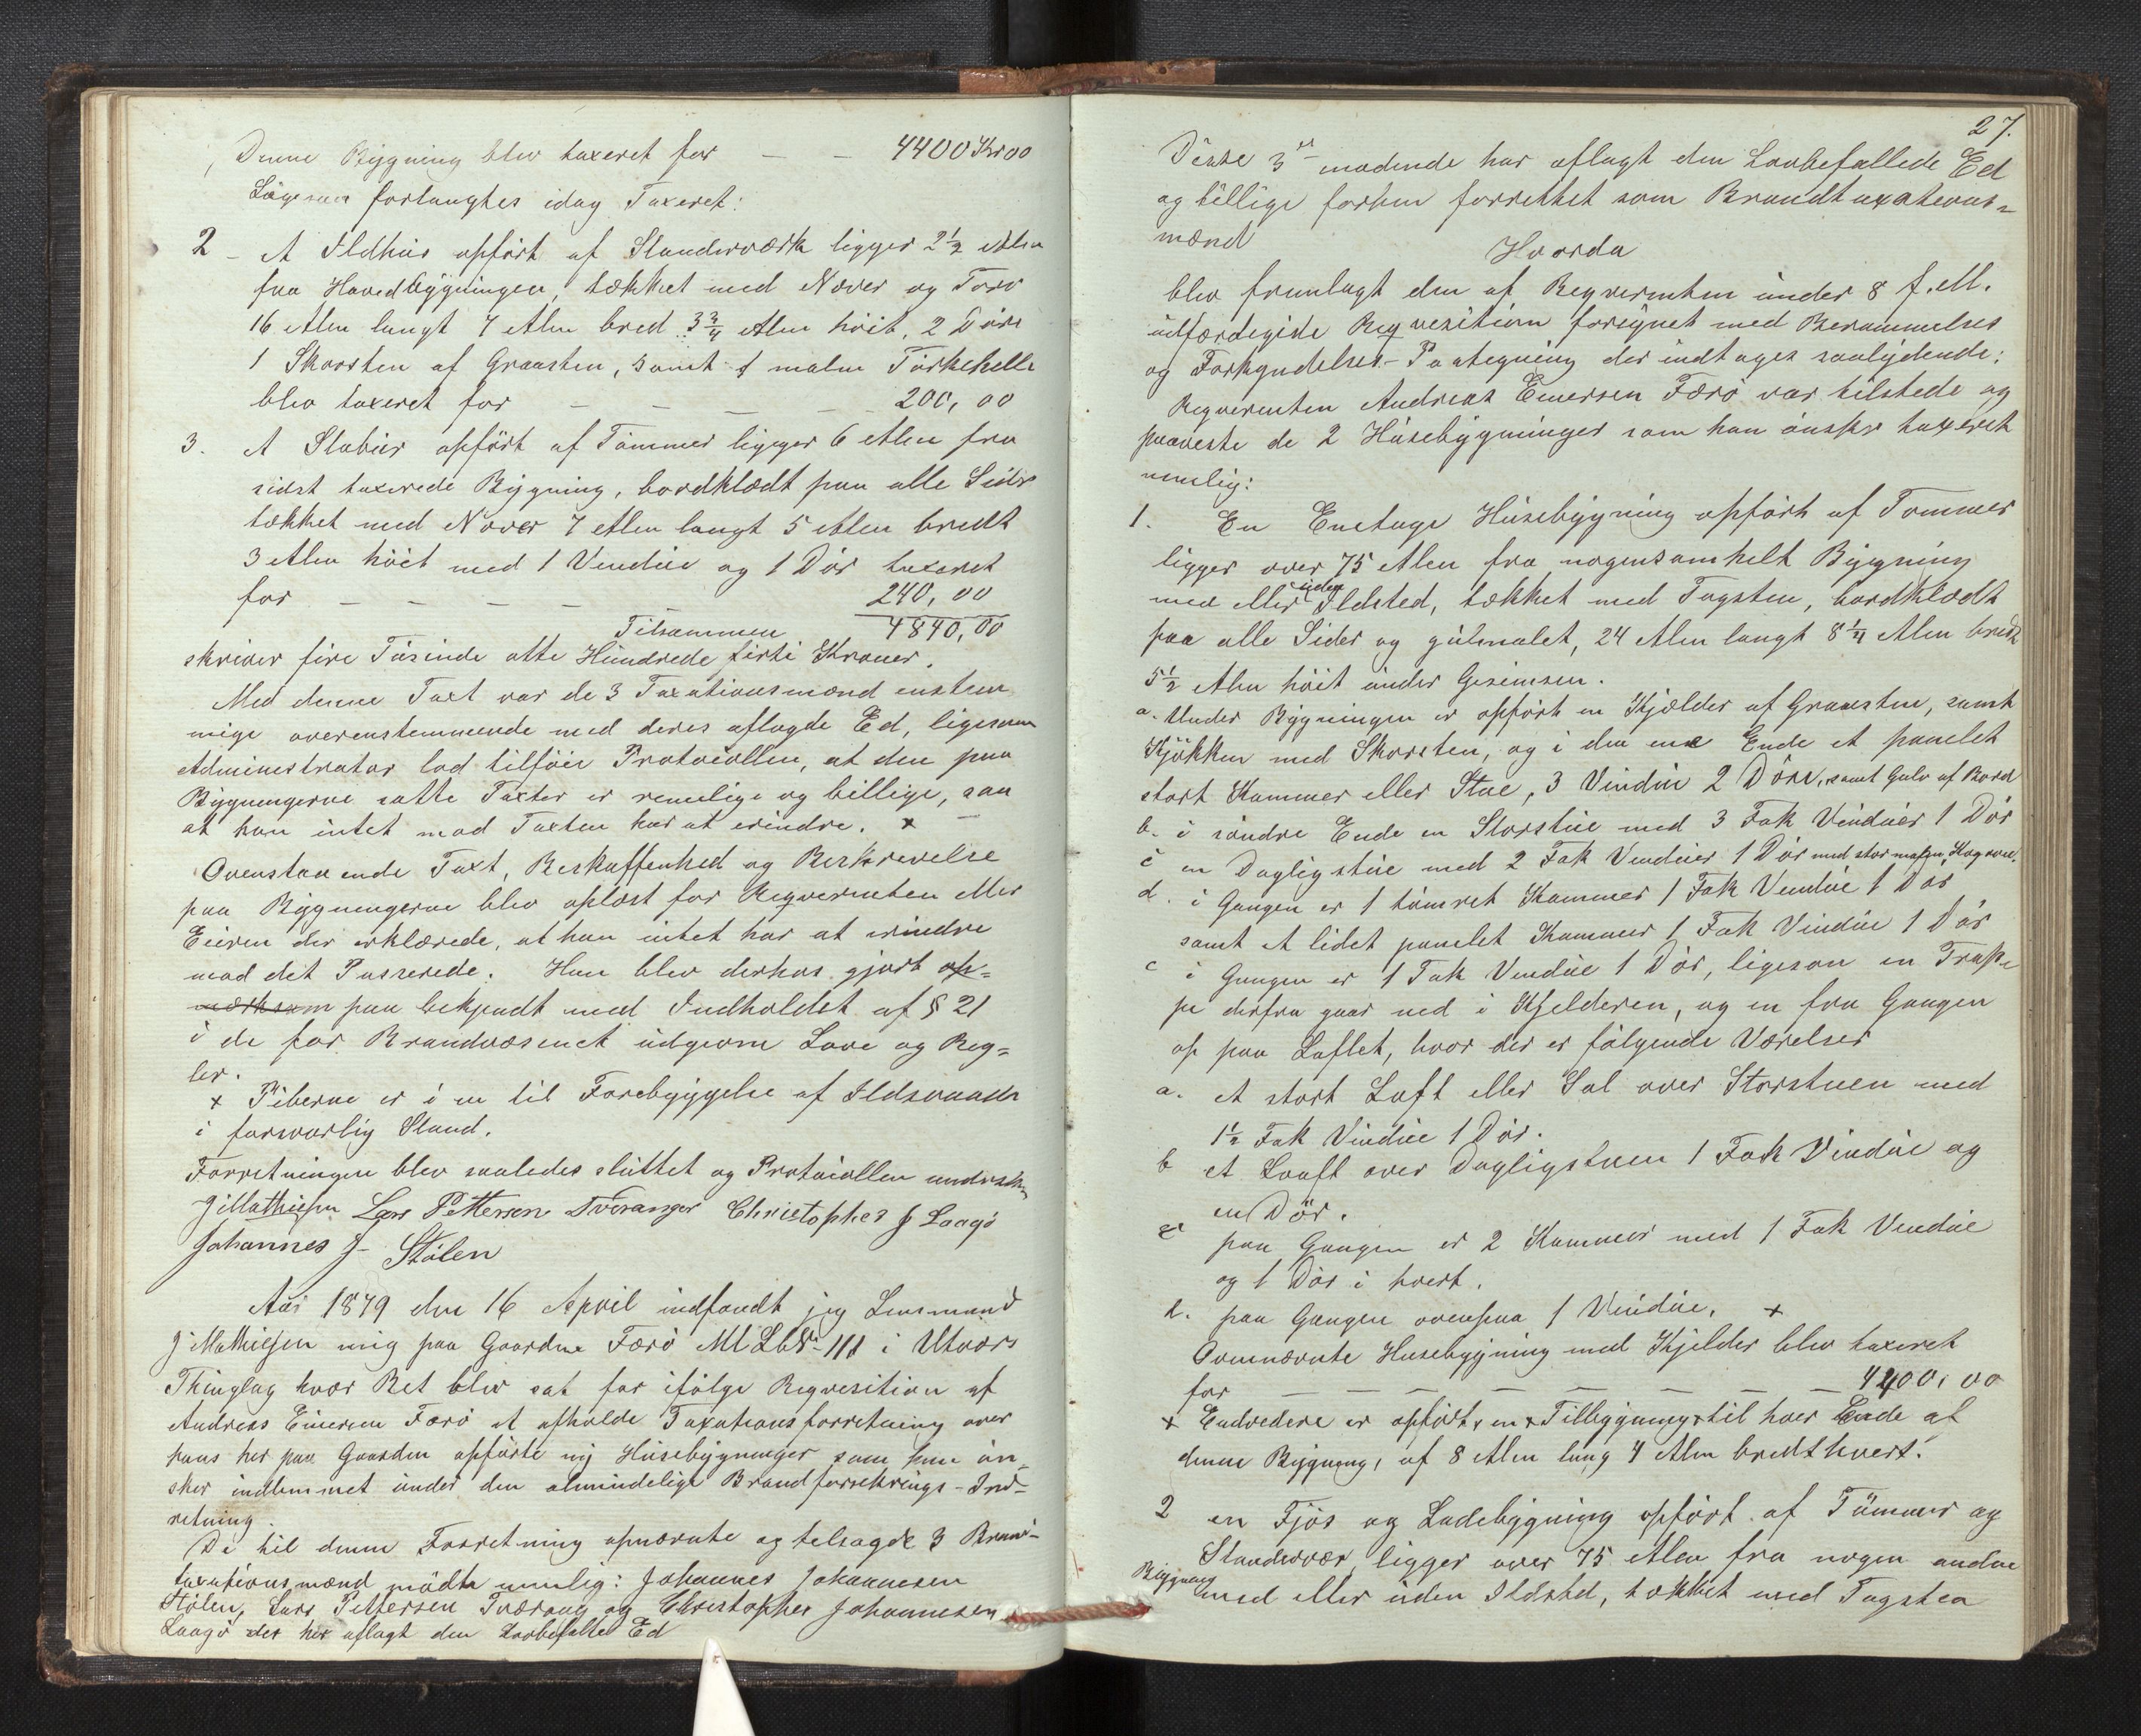 Denne Bygning blev taxeret for — — 4400 Kr 00
Ligesaa forlangtes idag Taxeret:
2 - et Ildhús opfört af Standerværk ligger 2 1/2 Alen
fra Hovedbygningen, tækket med Næver og Torv
16 Alen langt 7 Alen bred 3 3/4 Alen höit, 2 Döre
1 Skorsten af Graasten, samt 1 malm Törkehelle
blev taxeret for — — — — 200,00
3. et Stabúr opfört af Tömmer ligger 6 Alen fra
sidst taxerede Bygning, bordklædt paa alle Sider
tækket med Næver 7 Alen langt 5 Alen bredt
3 Alen höit med 1 Vindúe og 1 Dör taxeret
for — — — — 240,00
Tilsammen 4840,00
skriver fire Túsinde otte Húndrede firti Kroner.
Med denne Taxt var de 3 Taxationsmænd enstem
mige overenstemmende med deres aflagde Ed, ligesom
Administrator lod tilföie Protocollen, at den paa
Bygningerne satte Taxter er remelige og billige, saa
at han intet mod Taxten har at erindre. x —
Ovenstaaende Taxt, Beskaffenhed og Beskrivelse
paa Bygningerne blev oplæst for Reqverenten eller
Eieren der erklærede, at han intet har at erindre
mod det Passerede. Han blev derhos gjort op=
mærksom paa bekjendt med Indholdet af § 21
i de for Brandvæsenet údgivne Love og Reg=
ler.
x Piberne er i en til Forebyggelse af Ildsvaade
i forsvarlig Stand.
Forretningen blev saaledes slúttet og Protocollen underskr
J Mathiesen Lars Pettersen Tveranger Christopher J Laagö
Johannes J- Stölen
Aar 1879 den 16 April indfandt jeg Lensmand
J Mathiesen mig paa Gaarden Færö Ml Lbr- 111 i Utvær
Thinglag hvor Ret blev sat for ifölge Reqvesition af
Andreas Einersen Færö at afholde Taxationsforretning over
hans her paa Gaarden opförte ny Húsebygninger som han ön-
sker indlemmet únder den almindelige Brandforsekrings-Ind-
retning.
De til denne Forretning opnævnte og telsagde 3 Brand-
taxationsmænd mödte nemlig: Johannes Johannesen
Stölen, Lars Pettersen Tværang og Christopher Johannesen
Laagö der har aflagt den Lovbefalte Ed
27.
Disse 3de mødende har aflagt den Lovbefallede Ed
og billige forhen forrettet som Brandtaxations=
mænd
Hvorda
blev fremlagt den af Reqverenten únder 8 f. M.
údfærdigede Reqvesition forsynet med Berammelses
og Forkyndelses-Paategning der indtages saalydende:
Reqverenten Andreas Einersen Færö var tilstede og
paaveste de 2 Húsebygninger som han önsker taxeret
nemlig:
1. En Enetage Húsebygning opfört af Tommer
ligger over 75 Alen fra nogensomhelt Bygning
med eller úden Ildsted, tækket med Tagsten, bordklædt
paa alle Sider og gúlmalet, 24 Alen langt 8 1/4 Alen bredt
5 1/2 Alen höit únder Gesimsen.
a. Under Bygningen er opfört en Kjælder af Graasten, samt
Kjökken med Skorsten, og i den ene Ende et panelet
stort Kammer eller Stue, 3 Vindúe 2 Döre, samt Gulv af Bord
b. i söndre Ende en Storstúe med 3 Fak Vindúer 1 Dör
c en Dagligstúe med 2 Fak Vindúer 1 Dör med stor Kogeovn.
d. i Gangen er 1 tömret Kammer 1 Fak Vindúe 1 Dör
samt et lidet panelet Kammer 1 Fak Vindúe 1 Dör
e i Gangen er 1 Fak Vindúe 1 Dör, ligeson en Trap-
pe derfra gaar ned i Kjelderen, og en fra Gangen
op paa Loftet, hvor der er fölgende Værelser
a. et stort Loft eller Sal over Storstuen med
1 1/2 Fak Vindúe 1 Dör.
b et Looft over Dagligstuen 1 Fak Vindúe og
en Dör.
c paa Gangen er 2 Kammer med 1 Fak Vindúe
og 1 Dör i hvert.
d. paa Gangen ovenpaa 1 Vindúe. x
Ovennævnte Husebygning med Kjelder blev taxeret
for — — — — — — — — 4400,00
x Endvedere er opfört, en Tilbygning til hver Ende af
denne Bygning, af 8 Alen lang 4 Alen bredt hvert.
2 en Fjös og Ladebygning opfört af Tömmer og
Standerver, ligger over 75 Alen fra nogen anden
Bygning med eller úden Ildsted, tækket med Tagsten